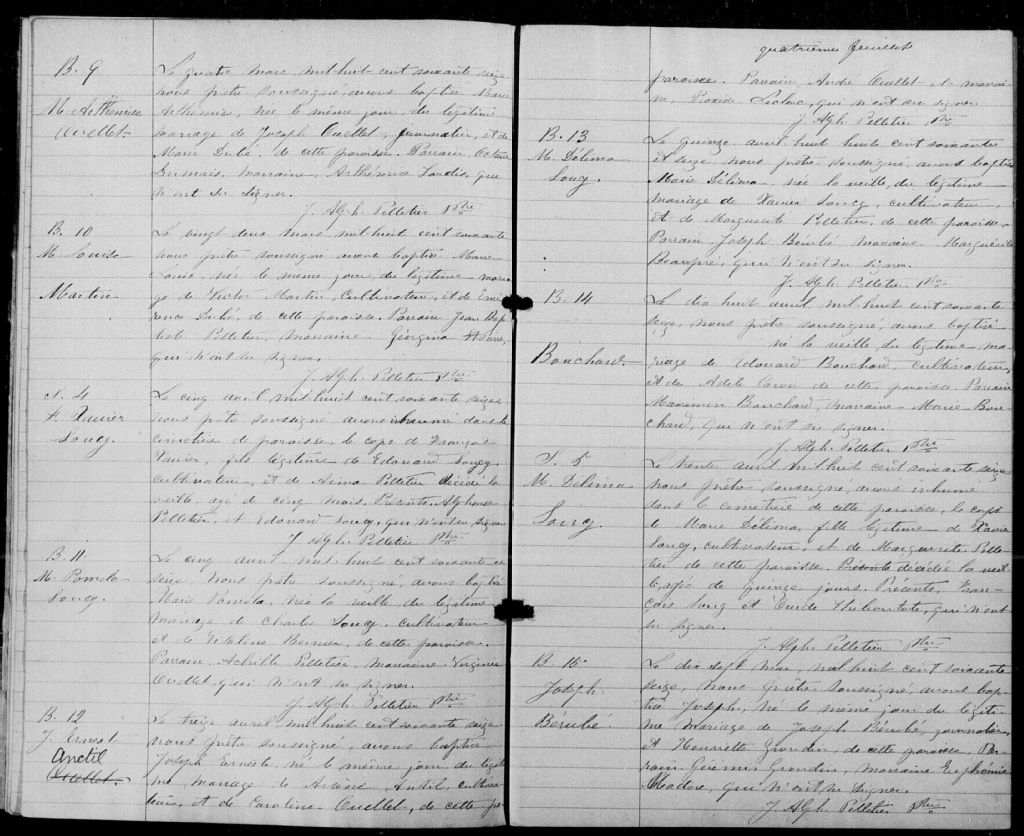 B. 9
M. Arthémise
Ouellet
Le quatre mars, mil huit cent soixante seize
nous prêtre soussigné, avons baptisé Marie
Arthémise, née le même jour, du légitime
mariage de Joseph Ouellet, journalier, et de
Marie Dubé, de cette paroisse. Parrain, Octave
Dumais, marraine, Arthémise Landis, que
n'ont su signer.
J. Alph. Pelletier Ptre
B. 10
M. Louise
Martin
Le vingt deux mars mil huit cent soixante
nous prêtre soussigné avons baptisé Marie
Louise, née le même jour, du légitime maria
ge de Victor Martin, Cultivateur, et de Emé
rence Dubé, de cette paroisse. Parrain Jean Bap
tiste Pelletier, Marraine Géorgina St Pierre,
qui n'ont su signer.
J. Alph. Pelletier Ptre
S. 4
F. Xavier
Soucy.
Le cinq avril mil huit cent soixante seize
nous prêtre soussigné avons inhumé dans le
cemetière de paroisse, le corps de François
Xavier, fils légitime de Edouard Soucy,
cultivateur, et de Pelletier décédé la
veille, agé de cinq mois. Présents, Alphonse
Pelletier, et Edouard Soucy, qui n'ont su signer
J. Alph. Pelletier Ptre
B. 11
M. Pomela
Soucy.
Le cinq avril mil huit cent soixante et
seize, nous prêtre soussigné, avons baptisé
Marie Pomela, née la veille du légitime
mariage de Charles Soucy, cultivateur
et de Bernier, de cette paroisse.
Parrain, Achille Pelletier, marraine Virginie
Ouellet, qui n'ont su signer.
J. Alph. Pelletier Ptre
B. 12
J. Ernest
Anctil
Ouellet.
Le treize avril mil huit cent soixante seize
nous prêtre soussigné, avons baptisé
Joseph Erneste né le même jour du légiti
me mariage de Arsène Antil, cultiva
teur, et de Caroline Ouellet, de cette pa
quatrième feuillet
paroisse. Parrain, André Ouellet et marrai
ne, Roxide Leclerc, qui n'ont su signer.
J. Alph Pelletier Ptre
B. 13
M. Délima
Soucy.
Le quinze avril huit huit cent soixante
et seize, nous prêtre soussigné, avons baptisé
Marie Délima, née la veille, du légitime
mariage de Xavier Soucy, cultivateur,
et de Marguerite Pelletier, de cette paroisse,
Parrain Joseph Bérubé marraine Marguerite
Beaupré, qui n'ont su signer.
J. Alph. Pelletier Ptre
B. 14
Bouchard.
Le dix huit avril, mil huit cent soixante
seize, nous prêtre soussigné, avons baptisé
né la veille, du légitime ma
riage de Edouard Bouchard, cultivateur,
et de Adele Caron de cette paroisse. Parrain
Maximin Bouchard, marraine Marie Bou
chard, qui n'ont su signer.
J. Alph. Pelletier Ptre
S. 5
M. Delima
Soucy.
Le trente avril mil huit cent soixante seize
nous prêtre soussigné, avons inhumé
dans le cemetière de cette paroisse, le corps
de Marie Délima, fille légitime de Xavier
Soucy, cultivateur, et de Marguerite Pelle
tier de cette paroisse. Présents décédée la veil
le, agée de quinze jours. Présents, Fran
cois Soucy et Thiboutot, qui n'ont
su signer.
J. Alph. Pelletier Ptre
B. 15
Joseph
Berubé
Le dix sept mai, mil huit cent soixante
seize, nous prêtre soussigné, avons bap
tisé Joseph, né le même jour du légiti
me mariage de Joseph Bérubé, journalier,
et Henriette Grondin, de cette paroisse. Par
rain Géremie Grondin, marraine Euphémie
Chadore, qui n'ont su signer.
J. Alph Pelletier Ptre